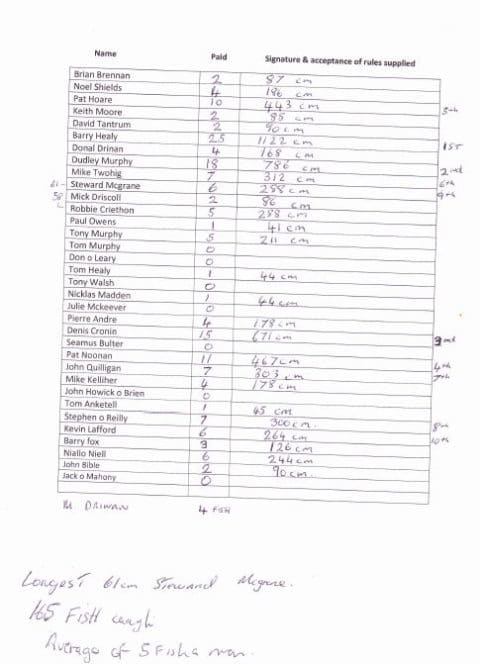 Name Paid Signature & acceptance of rules supplied
Brian Brennan 2 87 cm
Noel Shields 4 186 cm
Pat Hoare 10 443 cm 5th
Keith Moore 2 85 cm
David Tantrum 2 90 cm
Barry Healy 25 1122 cm 1st
Donal Drinan 4 168 cm
Dudley Murphy 18 786 cm 2nd
Mike Twohig 7 312 cm 6th
61- Steward Mcgrane 6 288 cm 9th
58 Mick Driscoll 2 86 cm
Robbie Criethon 5 288 cm
Paul Owens 1 41 cm
Tony Murphy 5 211 cm
Tom Murphy 0
Don o Leary 0
Tom Healy 1 44 cm
Tony Walsh 0
Nicklas Madden 1 44 cm
Julie Mckeever 0
Pierre Andre 4 178 cm
Denis Cronin 15 671 cm 3rd
Seamus Bulter 0
Pat Noonan 11 467 cm 4th
John Quilligan 7 303 cm 7th
Mike Kelliher 4 178 cm
John Howick o Brien 0
Tom Anketell 1 45 cm
Stephen o Reilly 7 300 cm. 8th
Kevin Lafford 6 264 cm 10th
Barry fox 3 126 cm
Niallo Niell 6 244 cm
John Bible 2 90 cm.
Jack o Mahony 0
DRIWAN 4 FISH
Longest 61cm Steward Mcgrane.
165 FISH caugh
Average of 5 Fish a man.